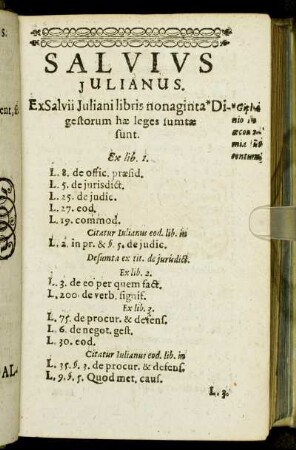 SALVIVS
JULIANUS.
Ex Salvii Juliani libris nonaginta *Di-
gestorum hæ leges sumtæ
sunt.
Ex lib. 1.
L. 8. de offic. præsid.
L. 5. de jurisdict.
L. 25. de judic.
L. 27. eod.
L. 19. commod.
Citatur Iulianus eod. lib. in
L. 2. in pr. & §. 5. de judic.
Desumta ex tit. de jurisdict.
Ex lib. 2.
L. 3. de eo per quem fact.
L. 200. de verb. signif.
Ex lib. 3.
L. 75. de procur. & defens.
L. 6. de negot. gest.
L. 30. eod.
Citatur Iulianus eod. lib. in
L. 35. §. 3. de procur. & defens.
L. 9. §. 5. Quod met. caus.
L. 3.
AL-